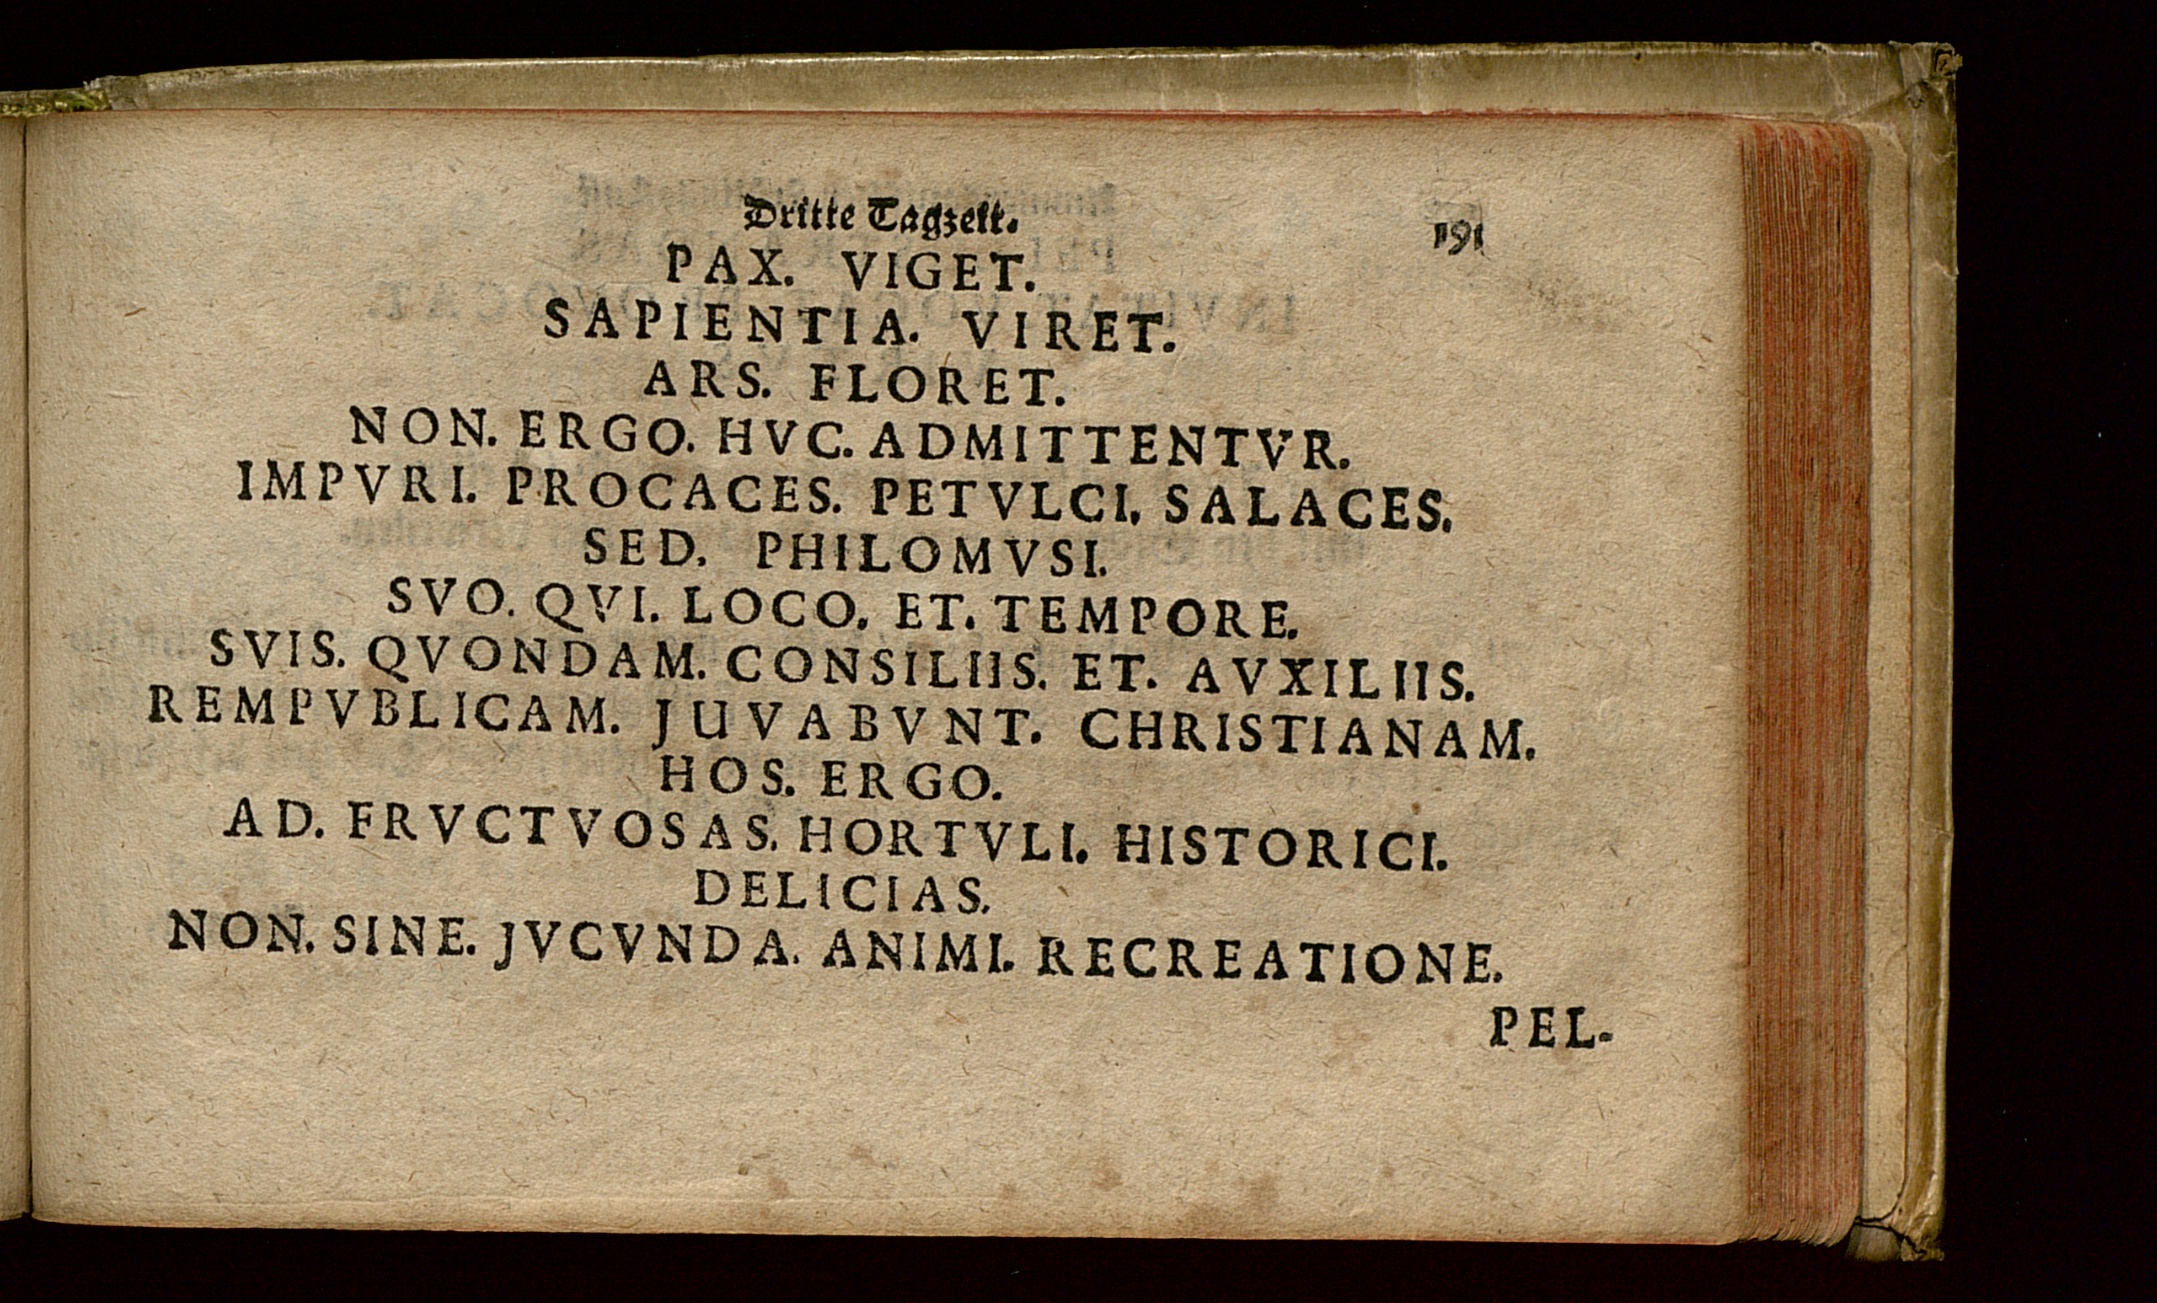 Dritte Tagzeit. 191
PAX. VIGET.
SAPIENTIA. VIRET.
ARS. FLORET.
NON. ERGO. HVC. ADMITTENTVR.
IMPVRI. PROCACES. PETVLCI. SALACES.
SED. PHILOMVSI.
SVO. QVI. LOCO. ET. TEMPORE.
SVIS. QVONDAM. CONSILIIS. ET. AVXILIIS.
REMPVBLICAM. JUVABVNT. CHRISTIANAM.
HOS. ERGO.
AD. FRVCTVOSAS. HORTVLI. HISTORICI.
DELICIAS.
NON. SINE. JVCVNDA. ANIMI. RECREATIONE.
PEL-